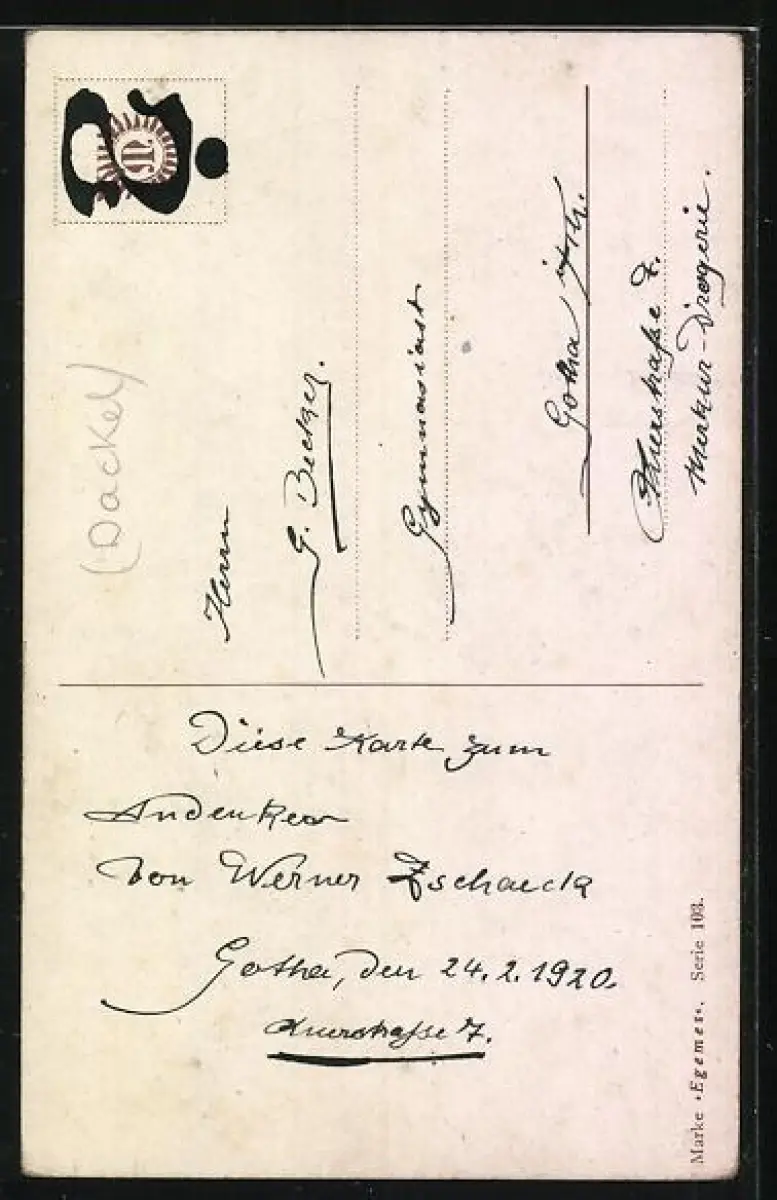 Diese Karte zum
Andenken
von Werner Zschaeck
Gotha, den 24.2.1920.
7.
(Dackel)
Herrn
G. Becker.
Gymnasiast
Gotha i/Th.
7.
Merkur-Drogerie.
Marke »Egemes«. Serie 103.